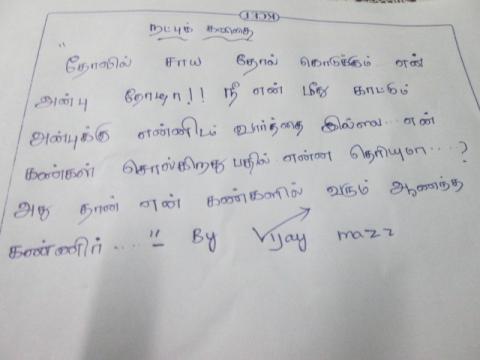 நட்புக் கவிதை
" தோளில் சாய தோல் கொடுக்கும் என்
அன்பு தோழா!! நீ என் மீது காட்டும்
அன்புக்கு என்னிடம் வார்த்தை இல்லை... என்
கண்கள் சொல்கிறது பதில் என்ன தெரியுமா....?
அது தான் என் கண்களில் வரும் ஆனந்த
கண்ணிர்....." By Vijay mazz